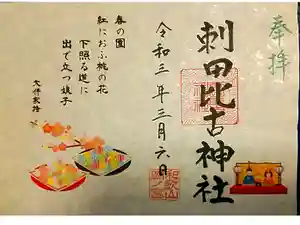 奉拝
刺田比古神社
令和三年三月六日
春の園
紅にほふ桃の花
下照る道に
出で立つ娘子
大伴家持